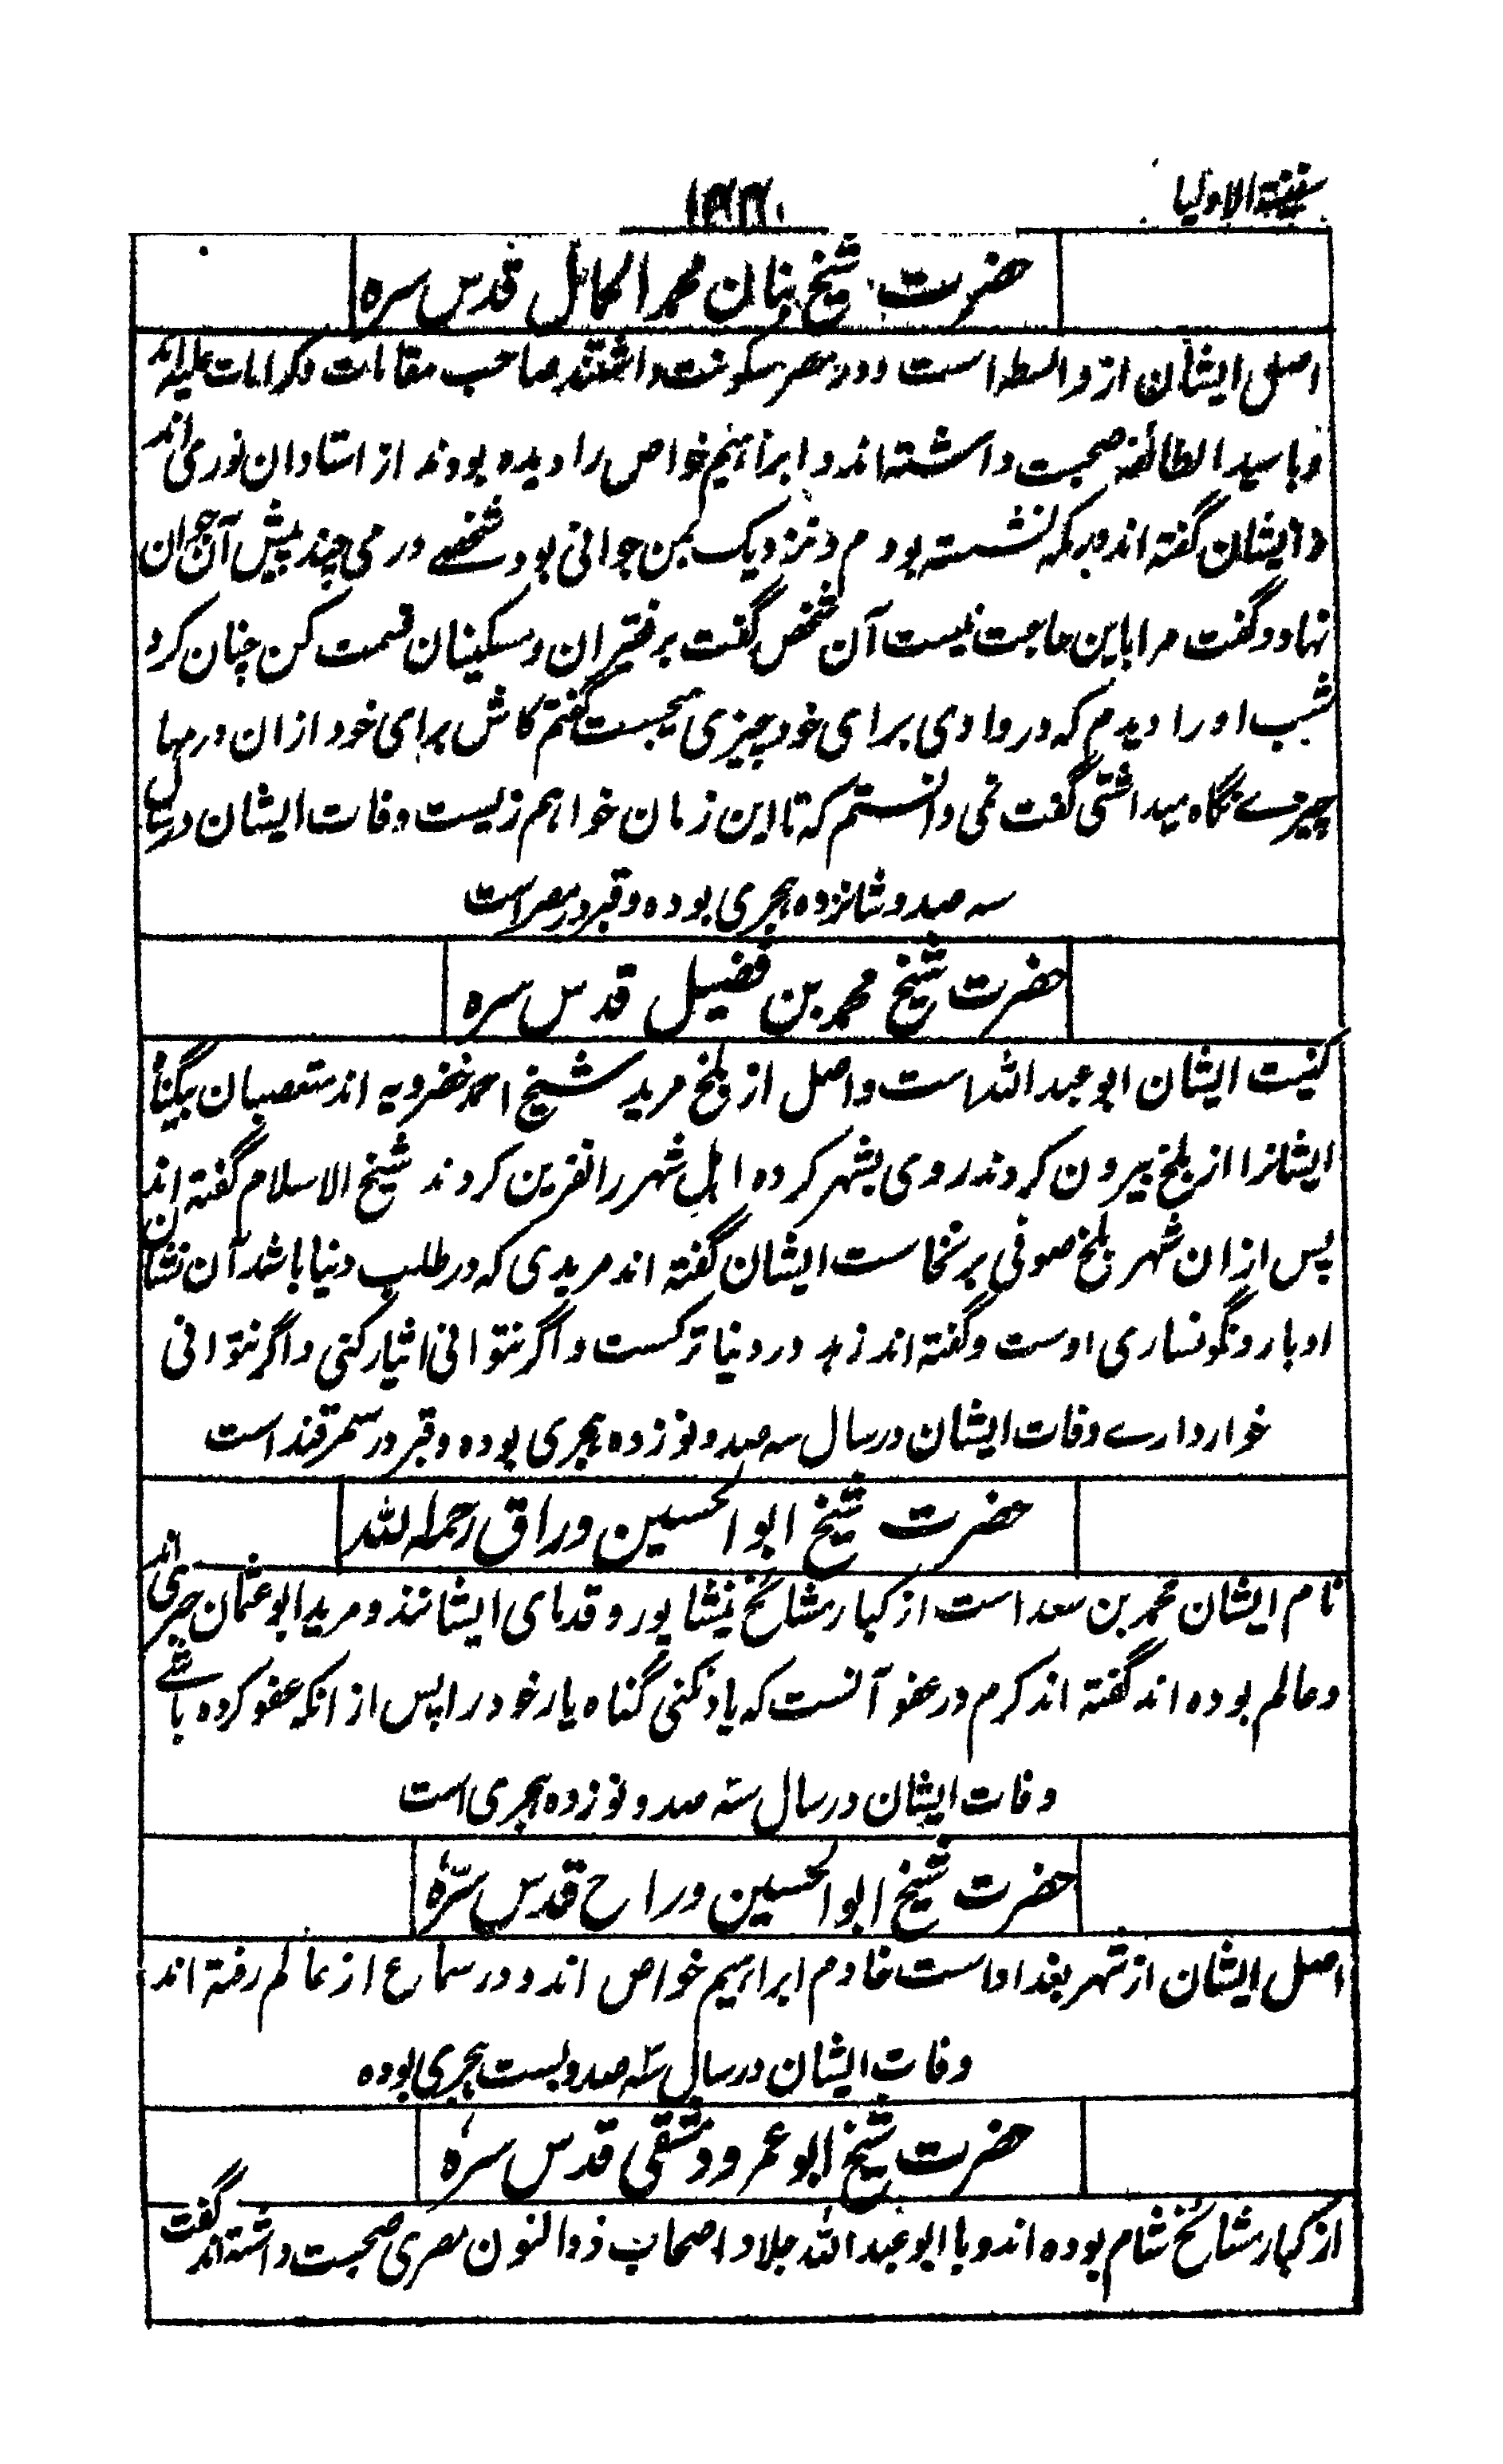 سفینة الاولیا
حضرت شیخ بنان محمد الحمال قدس سره
اصل ایشان از واسطه است و در مصر سکونت داشتند صاحب مقامات و کرامات علیه اند
و با سید الطائفه صحبت داشته اند و ابراهیم خواص را دیده بودند از استادان نوری اند
و ایشان گفته اند بمکه نشسته بودم و نزدیک بمن جوانی بود شخصے درمی چند پیش آن جوان
نهاد و گفت مرا باین حاجت نیست آن شخص گفت بر فقیران و مسکینان قسمت کن چنان کرد
شب او را دیدم که در وادی برای خود چیزی میجست گفتم کاش برای خود ازان درمها
چیزے نگاه میداشتی گفت نمی دانستم که تا این زمان خواهم زیست وفات ایشان در سال
سه صد و شانزده هجری بوده و قبر در مصر است
حضرت شیخ محمد بن فضیل قدس سره
کنیت ایشان ابو عبد الله است و اصل از بلخ مرید شیخ احمد خضرویه اند متعصبان بیگناه
ایشانرا از بلخ بیرون کردند روی بشهر کرده اهل شهر را نفرین کردند شیخ الاسلام گفته اند
پس ازان شهر بلخ صوفی بر نخاست ایشان گفته اند مریدی که در طلب دنیا باشد آن نشان
ادبار و نگونساری اوست و گفته اند زهد در دنیا ترکست و اگر نتوانی ایثار کنی و اگر نتوانی
خوار دارے وفات ایشان در سال سه صد و نوزده هجری بوده و قبر در سمرقند است
حضرت شیخ ابو الحسین وراق رحمه الله
نام ایشان محمد بن سعد است از کبار مشائخ نیشاپور و قدمای ایشانند و مرید ابو عثمان حیری اند
و عالم بوده اند گفته اند کرم در عفو آنست که یاد نکنی گناه یار خود را پس از انکه عفو کرده باشے
وفات ایشان در سال سه صد و نوزده هجری است
حضرت شیخ ابو الحسین وراح قدس سرّهٗ
اصل ایشان از شهر بغداد است خادم ابراهیم خواص اند و در سماع از عالم رفته اند
وفات ایشان در سال سه صد و بست هجری بوده
حضرت شیخ ابو عمرو دمشقی قدس سرهٗ
از کبار مشائخ شام بوده اند و با ابو عبد الله جلا و اصحاب ذوالنون مصری صحبت داشته اند گفت